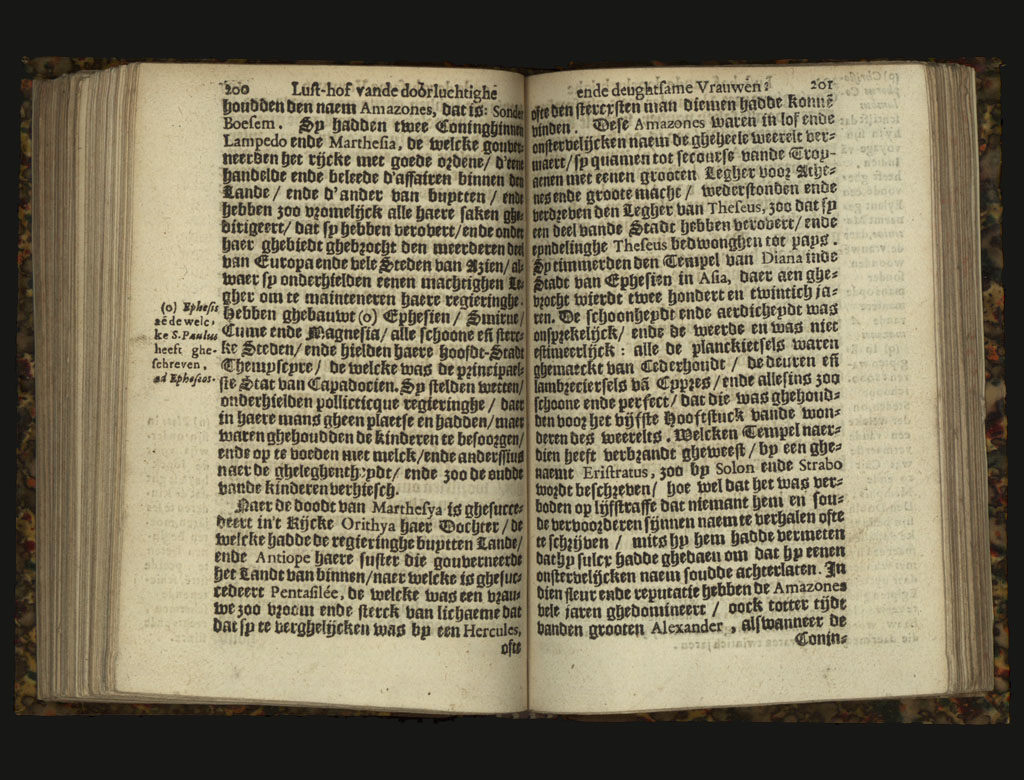 200 Lust-hof vande doorluchtighe
houdden den naem Amazones, dat is: Sonder
Boesem. Sy hadden twee Coninghinnen
Lampedo ende Marthesia, de welcke gouver-
neerden het rijcke met goede ordene/ d'eene
handelde ende beleede d'affairen binnen den
Lande/ ende d'ander van buytten/ ende
hebben zoo vromelijck alle haere saken ghe-
dirigeert/ dat sy hebben verovert/ ende onder
haer ghebiedt ghebrocht den meerderen deel
van Europa ende vele Steden van Azien/ al-
waer sy onderhielden eenen machtighen Le-
gher om te mainteneren haere regieringhe.
Hebben ghebauwt (o) Ephesien/ Smirne/
Cume ende Magnesia/ alle schoone eñ sterc-
ke Steden/ ende hielden haere hoofdt-Stadt
Thempscyre/ de welcke was de principael-
ste Stat van Capadocien. Sy stelden wetten/
onderhielden pollicticque regieringhe/ daer
in haere mans gheen plaetse en hadden/ maer
waren ghehoudden de kinderen te besoorgen/
ende op te voeden met melck/ ende anderssius
naer de gheleghenth:ydt/ ende zoo de oudde
vande kinderen verhiesch.
Naer de doodt van Marthesya is ghesucce-
deert in't Rijcke Orithya haer Dochter/ de
welcke hadde de regieringhe buytten Lande/
ende Antiope haere suster die gouverneerde
het Landt van binnen/ naer welcke is ghesuc-
cedeert Pentasilée, de welcke was een vrau-
we zoo vroom ende sterck van lichaeme dat
dat sy te verghelijcken was by een Hercules,
ofte
(o) Ephesie
zē de welc-
ke S. Paulus
heeft ghe-
schreven,
ad Ephesos.
ende deughtsame Vrauwen. 201
ofte den stercxsten man diemen hadde konnē
vinden. Dese Amazones waren in lof ende
onstervelijcken naem de gheheele weerelt ver-
maert/ sy quamen tot secourse vande Troy-
aenen met eenen grooten Legher voor Athe-
nes ende groote macht/ wederstonden ende
verdreven den Legher van Theseus, zoo dat sy
een deel vande Stadt hebben verovert/ ende
eyndelinghe Theseus bedwonghen tot pays.
Sy timmerden den Tempel van Diana inde
Stadt van Ephesien in Asia, daer aen ghe-
vrocht wierdt twee hondert en twintich ja-
ren. De schoonheydt ende aerdicheydt was
onsprekelijck/ ende de weerde en was niet
estimeerlijck: alle de planckietsels waren
ghemaeckt van Cederhoudt/ de deuren eñ
lambreciersels vā Cypres/ ende allesins zoo
schoone ende perfect/ dat die was ghehoud-
den voor het vijfste Hooftstuck vande won-
deren des weerelts. Welcken Tempel naer-
dien heeft verbrandt gheweest/ by een ghe-
naemt Eristratus, zoo by Solon ende Strabo
wordt beschreven/ hoe wel dat het was ver-
boden op lijfstraffe dat niemant hem en sou-
de vervoorderen sijnnen naem te verhalen ofte
te schrijven/ mits hy hem hadde vermeten
dat hy sulcx hadde ghedaen om dat hy eenen
onstervelijcken naem soudde achterlaten. In
dien fleur ende reputatie hebben de Amazones
vele jaren ghedomineert/ oock totter tijde
vanden grooten Alexander, alswanneer de
Conin-